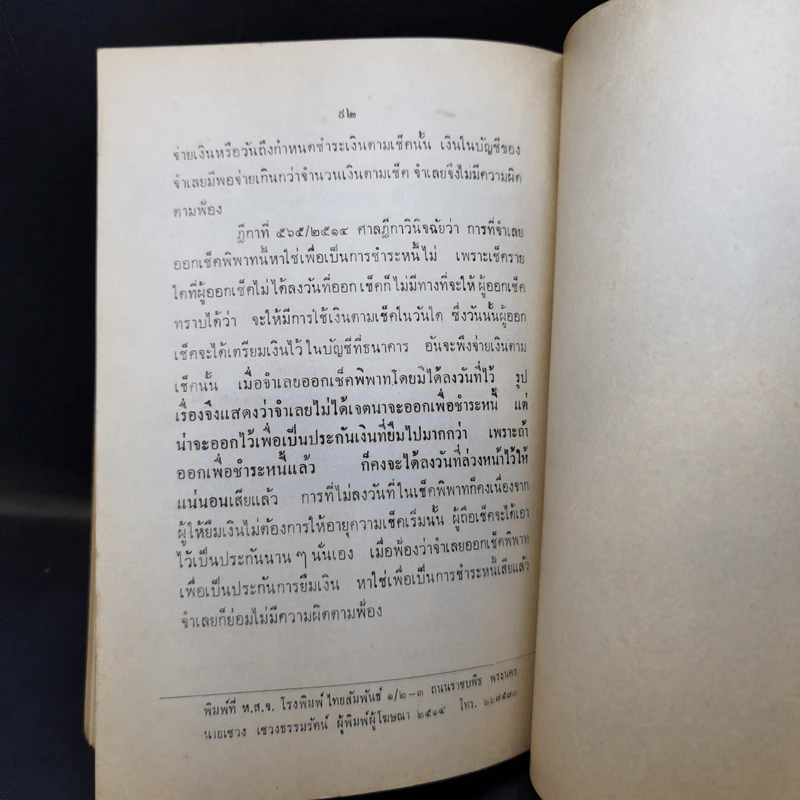 ๙๒
จ่ายเงินหรือวันถึงกำหนดชำระเงินตามเช็คนั้น เงินในบัญชีของ
จำเลยมีพอจ่ายเกินกว่าจำนวนเงินตามเช็ค จำเลยจึงไม่มีความผิด
ตามฟ้อง
ฎีกาที่ ๕๖๕/๒๕๑๔ ศาลฎีกาวินิจฉัยว่า การที่จำเลย
ออกเช็คพิพาทนี้หาใช่เพื่อเป็นการชำระหนี้ไม่ เพราะเช็คราย
ใดที่ผู้ออกเช็คไม่ได้ลงวันที่ออก เช็คก็ไม่มีทางที่จะให้ ผู้ออกเช็ค
ทราบได้ว่า จะให้มีการใช้เงินตามเช็คในวันใด ซึ่งวันนั้นผู้ออก
เช็คจะได้เตรียมเงินไว้ ในบัญชีที่ธนาคาร อันจะพึงจ่ายเงินตาม
เช็คนั้น เมื่อจำเลยออกเช็คพิพาทโดยมิได้ลงวันที่ไว้ รูป
เรื่องจึงแสดงว่าจำเลยไม่ได้เจตนาจะออกเพื่อชำระหนี้ แต่
น่าจะออกไว้เพื่อเป็นประกันเงินที่ยืมไปมากกว่า เพราะถ้า
ออกเพื่อชำระหนี้แล้ว ก็คงจะได้ลงวันที่ล่วงหน้าไว้ให้
แน่นอนเสียแล้ว การที่ไม่ลงวันที่ในเช็คพิพาทก็คงเนื่องจาก
ผู้ให้ยืมเงินไม่ต้องการให้อายุความเช็คเริ่มนั้น ผู้ถือเช็คจะได้เอา
ไว้เป็นประกันนาน ๆ นั่นเอง เมื่อฟ้องว่าจำเลยออกเช็คพิพาท
เพื่อเป็นประกันการยืมเงิน หาใช่เพื่อเป็นการชำระหนี้เสียแล้ว
จำเลยก็ย่อมไม่มีความผิดตามฟ้อง
พิมพ์ที่ ห.ส.จ. โรงพิมพ์ ไทยสัมพันธ์ ๑/๒-๓ ถนนราชบพิธ พระนคร
นายเชวง เชวงธรรมรัตน์ ผู้พิมพ์ผู้โฆษณา ๒๕๑๔ โทร.